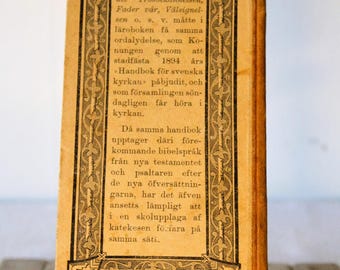 Fader vår, Välsignel-
sen o. s. v. måtte i
läroboken få samma
ordalydelse, som Ko-
nungen genom att
stadfästa 1894 års
»Handbok för svenska
kyrkan» påbjudit, och
som församlingen sön-
dagligen får höra i
kyrkan.
Då samma handbok
upptager däri före-
kommande bibelspråk
från nya testamentet
och psaltaren efter
de nya öfversättnin-
garna, har det äfven
ansetts lämpligt att
i en skolupplaga af
katekesen förfara på
samma sätt.